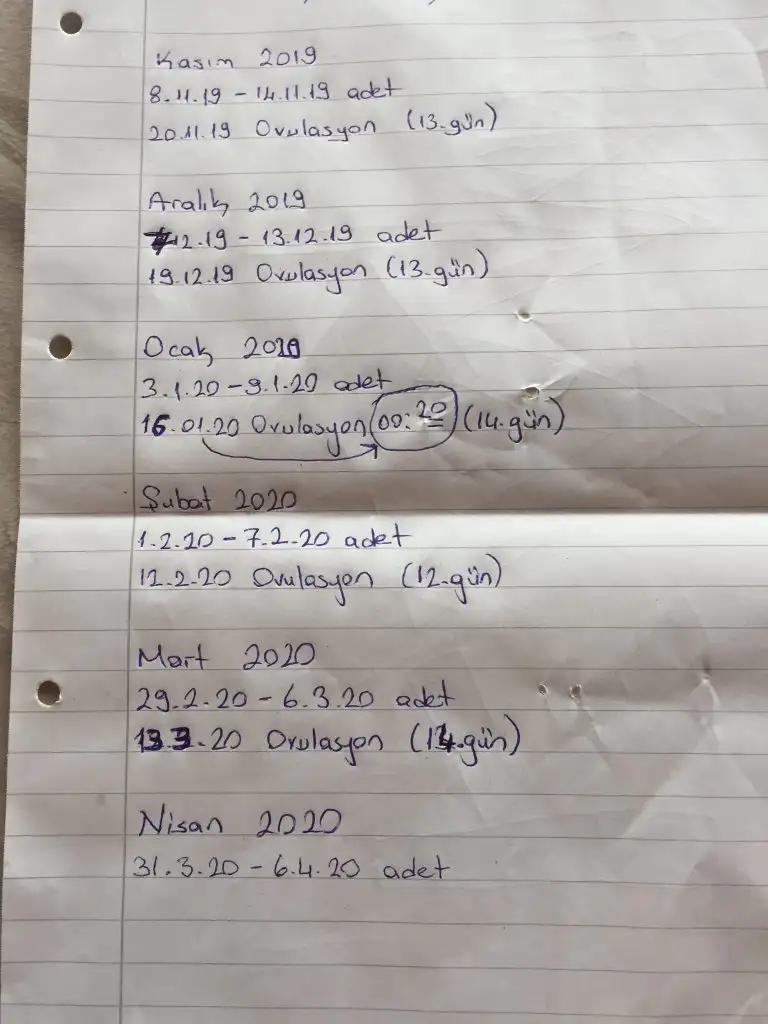 Kasım 2019
8.11.19 - 14.11.19 adet
20.11.19 Ovulasyon (13.gün)
Aralık 2019
7.12.19 - 13.12.19 adet
19.12.19 Ovulasyon (13.gün)
Ocak 2020
3.1.20 - 9.1.20 adet
16.01.20 Ovulasyon 00:20 (14.gün)
Şubat 2020
1.2.20 - 7.2.20 adet
12.2.20 Ovulasyon (12.gün)
Mart 2020
29.2.20 - 6.3.20 adet
13.3.20 Ovulasyon (14.gün)
Nisan 2020
31.3.20 - 6.4.20 adet